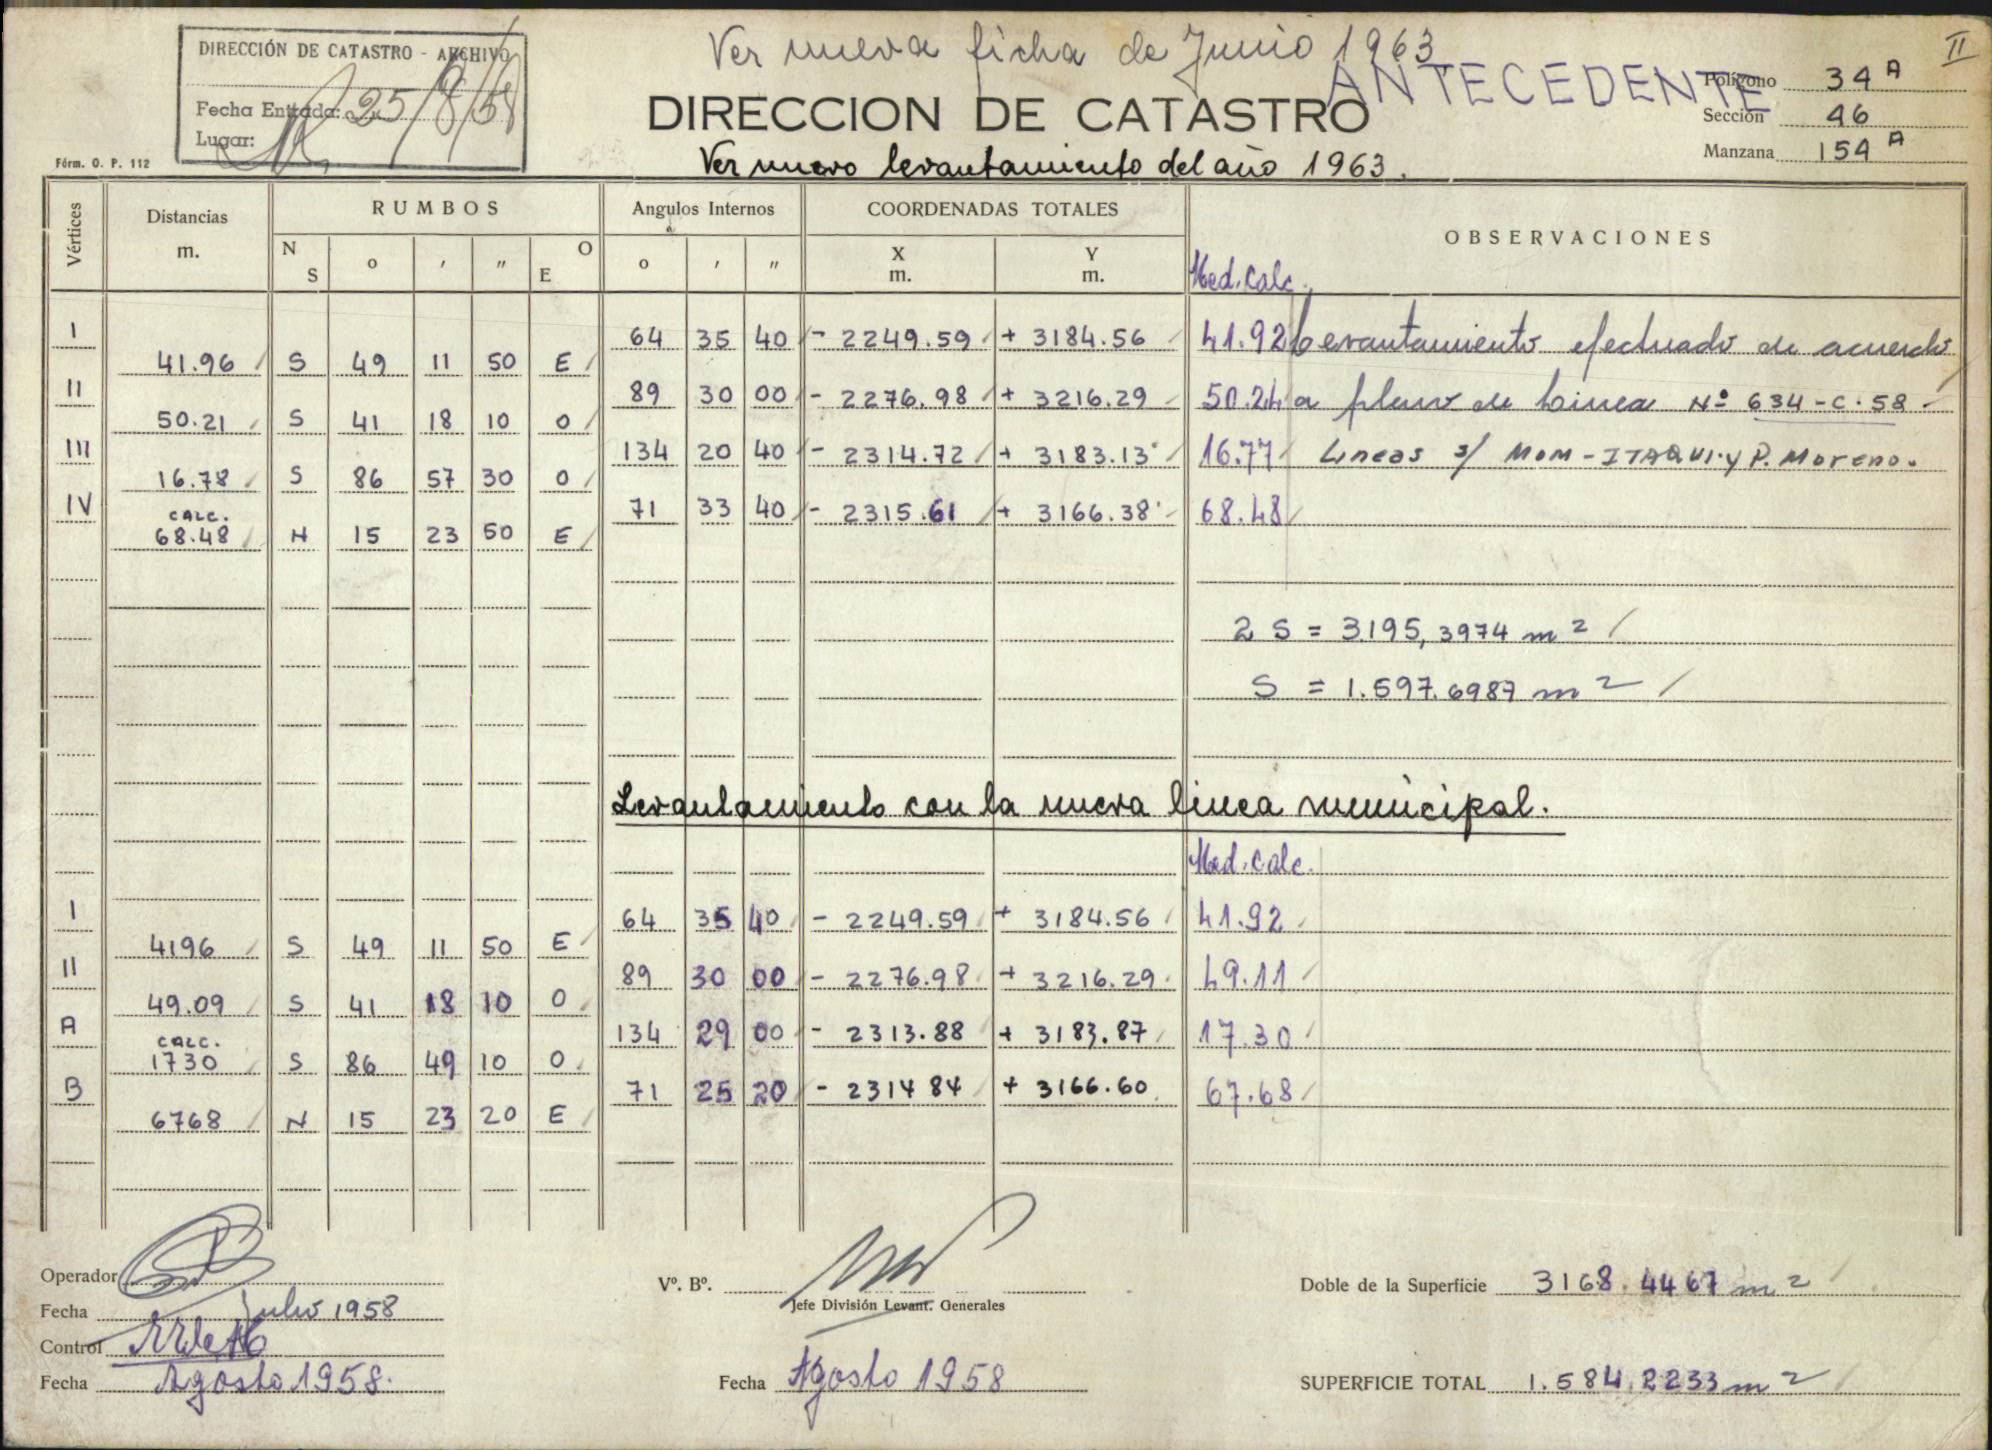 Ver nueva ficha de Junio 1963
II
DIRECCIÓN DE CATASTRO - ARCHIVO
Fecha Entrada: 25/8/58
Lugar:
ANTECEDENTE
Polígono 34 A
Sección 46
Manzana 154 A
DIRECCION DE CATASTRO
Fórm. O. P. 112
Ver nuevo levantamiento del año 1963.
Vértices Distancias m. RUMBOS Angulos Internos COORDENADAS TOTALES OBSERVACIONES
N S o ' " O E o ' " X m. Y m.
Med. Calc.
I 64 35 40 - 2249.59 + 3184.56 41.92 Levantamiento efectuado de acuerdo
41.96 S 49 11 50 E
II 89 30 00 - 2276.98 + 3216.29 50.24 a plano de Linea Nº 634-C-58-
50.21 S 41 18 10 O
III 134 20 40 - 2314.72 + 3183.13 16.77 Lineas s/ MOM - ITAQUI. y P. Moreno.
16.78 S 86 57 30 O
IV 71 33 40 - 2315.61 + 3166.38 68.48
CALC.
68.48 N 15 23 50 E
2 S = 3195,3974 m2
S = 1.597.6987 m2
Levantamiento con la nueva linea municipal.
Med. Calc.
I 64 35 40 - 2249.59 + 3184.56 41.92
4196 S 49 11 50 E
II 89 30 00 - 2276.98 + 3216.29 49.11
49.09 S 41 18 10 O
A 134 29 00 - 2313.88 + 3183.87 17.30
CALC.
1730 S 86 49 10 O
B 71 25 20 - 2314 84 + 3166.60 67.68
6768 N 15 23 20 E
Operador
Fecha julio 1958
Control
Fecha Agosto 1958.
Vº. Bº.
Jefe División Levant. Generales
Fecha Agosto 1958
Doble de la Superficie 3168.4467 m2
SUPERFICIE TOTAL 1.584.2233 m2